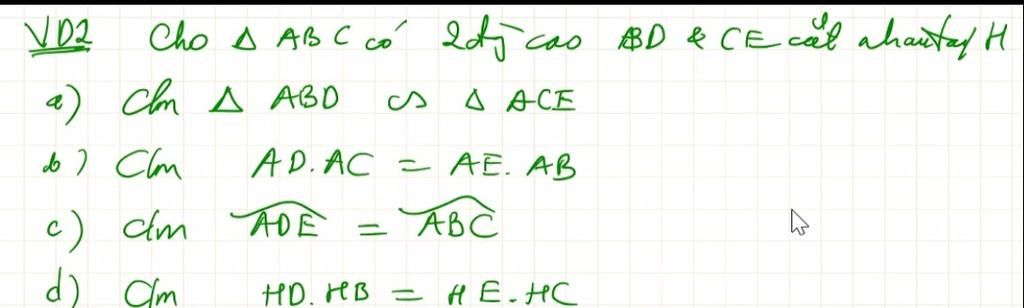 VD2 Cho Δ ABC có 2 đg cao BD & CE cắt nhau tại H
a) Cm Δ ABD ∽ Δ ACE
b) Cm AD.AC = AE.AB
c) Cm ADE = ABC
d) Cm HD.HB = HE.HC